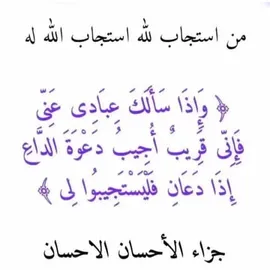 من استجاب لله استجاب الله له
﴿ وَإِذَا سَأَلَكَ عِبَادِى عَنِّى
فَإِنِّى قَرِيبٌ أُجِيبُ دَعْوَةَ الدَّاعِ
إِذَا دَعَانِ فَلْيَسْتَجِيبُوا لِى ﴾
جزاء الأحسان الاحسان